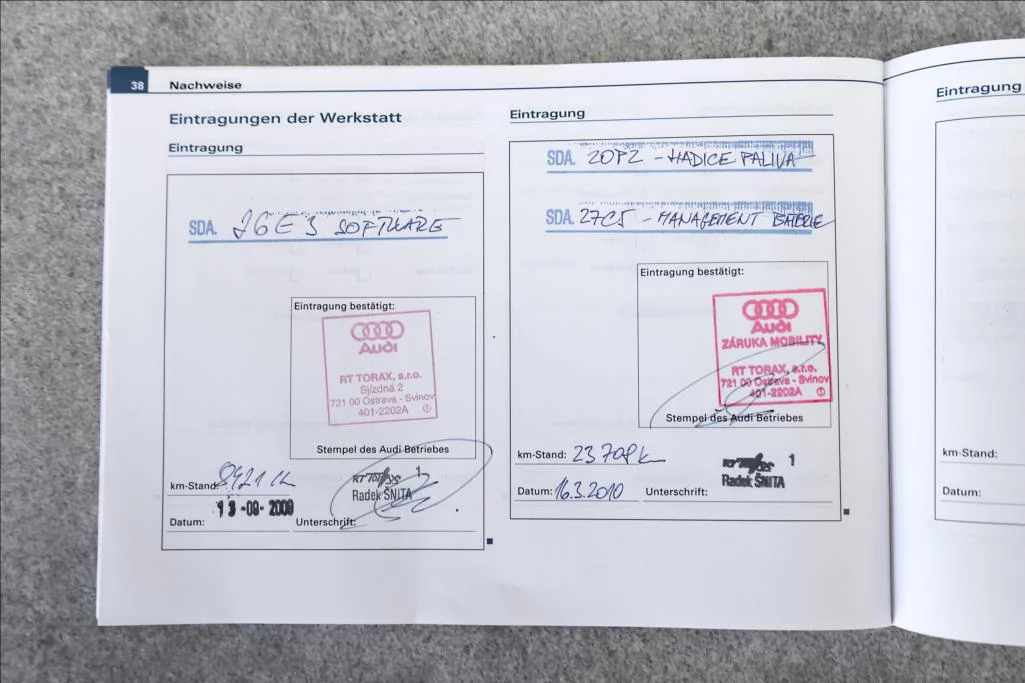 38 Nachweise
Eintragungen der Werkstatt
Eintragung
SDA. 26E3 SOFTWARE
Eintragung bestätigt:
Audi
RT TORAX, s.r.o.
Sjízdná 2
721 00 Ostrava - Svinov
401-2202A 1
Stempel des Audi Betriebes
km-Stand:
Radek ŠNITA
1
Datum:
Unterschrift:
Eintragung
SDA. 20P2 - HADICE PALIVA
SDA. 27C5 - MANAGEMENT BATERIE
Eintragung bestätigt:
Audi
ZÁRUKA MOBILITY
RT TORAX, s.r.o.
721 00 Ostrava - Svinov
401-2202A 1
Stempel des Audi Betriebes
km-Stand: 23708k
1
Radek ŠNITA
Datum: 16.3.2010 Unterschrift:
Eintragung
km-Stand:
Datum: